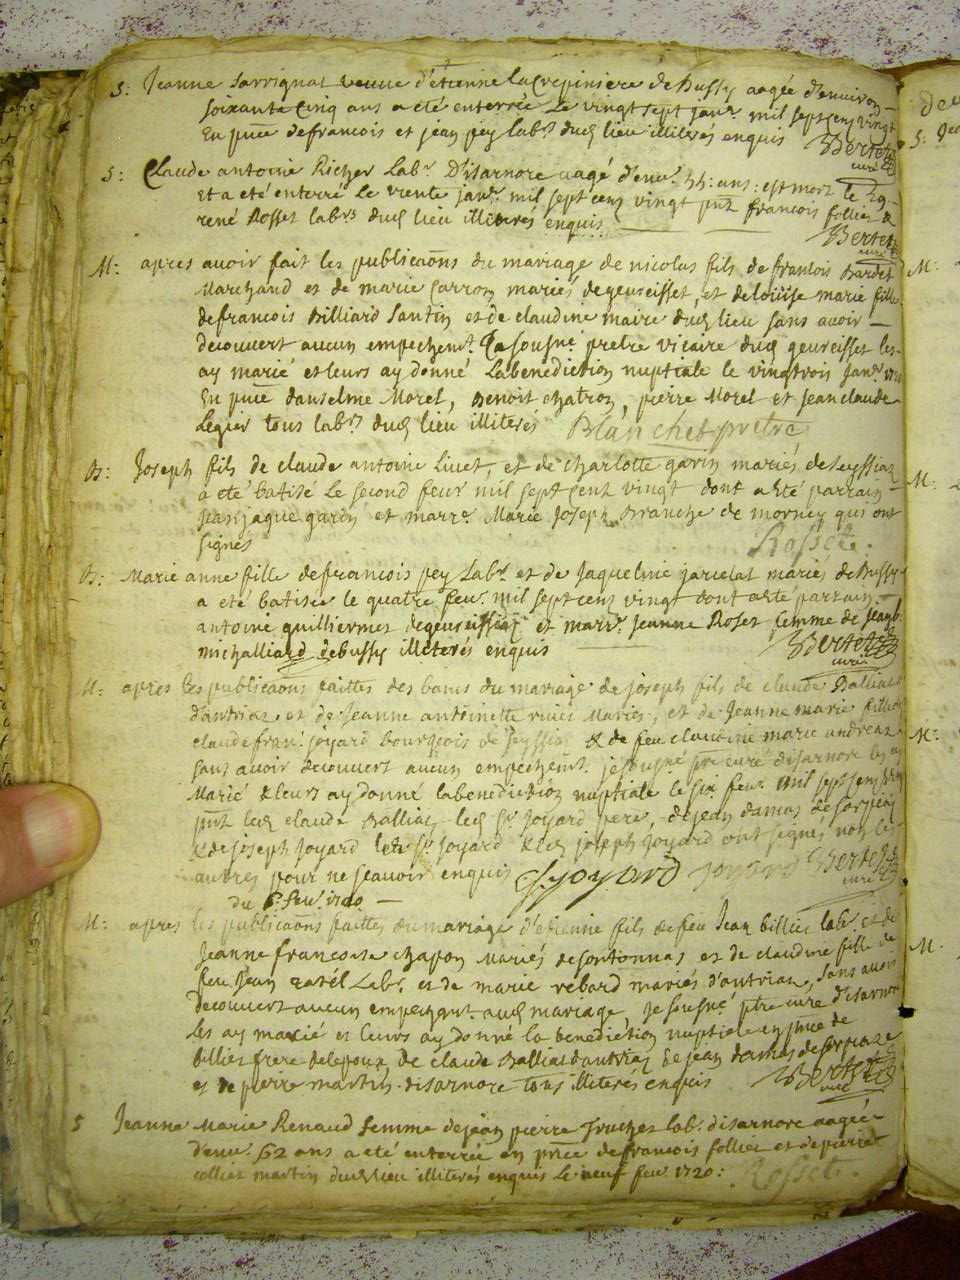 S: Jeanne Sarrignat veuve d'étienne lacrepiniere de Bussy aagée d'environ
soixante cinq ans a été enterrée le vingt sept janr. mil sept cens vingt
En pnce de francois et jean pey labrs dud lieu illiterés enquis Bertet curé
S: Claude antoine Richer Labr. D'isarnore aagé d'envn. 35: ans: est mort le 29
et a été enterré le trente janr. mil sept cens vingt pnt francois follier &
rené Rosset labrs dud lieu illiterés enquis Bertet curé
M: apres avoir fait les publicaôns du mariage de nicolas fils de francois Bardet
Marchand et de marie carron mariés de geureisset, et de loüise marie fille
de francois Billiard Santin et de claudine maire dud lieu sans avoir
decouvert aucun empechemt. Je sousné pretre vicaire dud geureisset les
ay marié et leurs ay donné La benediction nuptiale le vingtrois Janr. 1720
En pnce d'anselme Morel, Benoit chatron, pierre Morel et Jean claude
Legier tous labrs dud lieu illiterés Blanchet pretre
B: Joseph fils de claude antoine Livet, et de charlotte garin mariés de Leyssiat
a été batisé Le second feur mil sept cens vingt dont a été parrain
jean jaque garin et marre. Marie Joseph Branche de mornay qui ont
signés Rosset.
B: Marie anne fille de francois pey Labr. et de Jaqueline jarcelat mariés de Bussy
a été batisée le quatre feur. mil sept cens vingt dont a été parrain
antoine guilliermet de geureissiat et marre. Jeanne Roset femme de jean b.
michalliard de bussy illiterés enquis Bertet curé
M: apres les publicaôns faittes des bans du mariage de joseph fils de claude Balliat
d'antriat et de Jeanne antoinette Mariés, et de Jeanne marie fille
claude fran: joyard bourgeois de & de feu claudine marie andreat
sans avoir decouvert aucun empechemt. je sousné ptre curé disarnore les ay
Marié & leurs ay donné la benediction nuptiale le six feur mil sept cens vingt
pnt led claude Balliat, led Sr. Joyard pere, de jean damas de
& de joseph Joyard led Sr. Joyard & led joseph Joyard ont signés non les
autres pour ne scavoir enquis Joyard joyard Bertet curé
du 6 feur. 1720
M: apres les publicaôns faittes du mariage d'etienne fils de feu Jean billiet labr. et de
Jeanne francoise chapon Mariés de sontonnas et de claudine fille de
feu jean ratel Labr. et de marie rebard mariés d'antriat, sans avoir
decouvert aucun empechemt. aud mariage, je sousné ptre curé disarnore
Les ay marié et leurs ay donné la benediction nuptiale en pnce de
billiet frere de lepoux de claude Balliat d'antriat de jean damas de
et de pierre martin disarnore tous illiterés enquis Bertet curé
S Jeanne Marie Renaud femme de jean pierre Truchet labr. disarnore aagée
d'envn. 62 ans a été enterrée en pnce de francois follier et de pierre
collier martin dud lieu illiterés enquis le neuf feur 1720: Rosset.